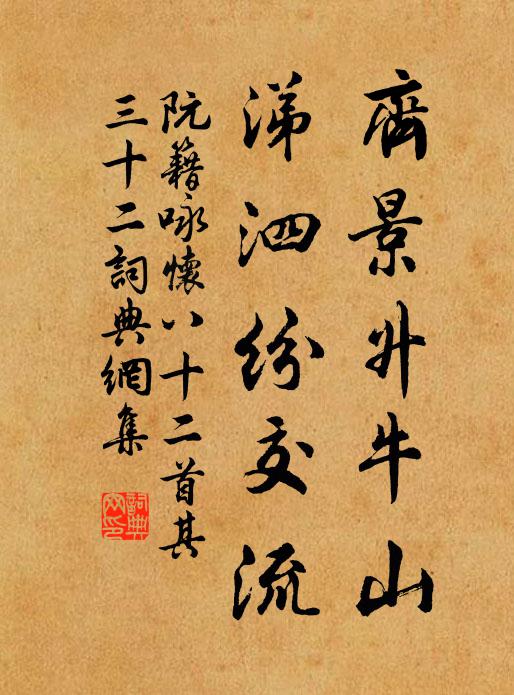 齊景升牛山
涕泗紛交流
阮籍咏懷八十二首其
三十二詞典網集
詞典
网印